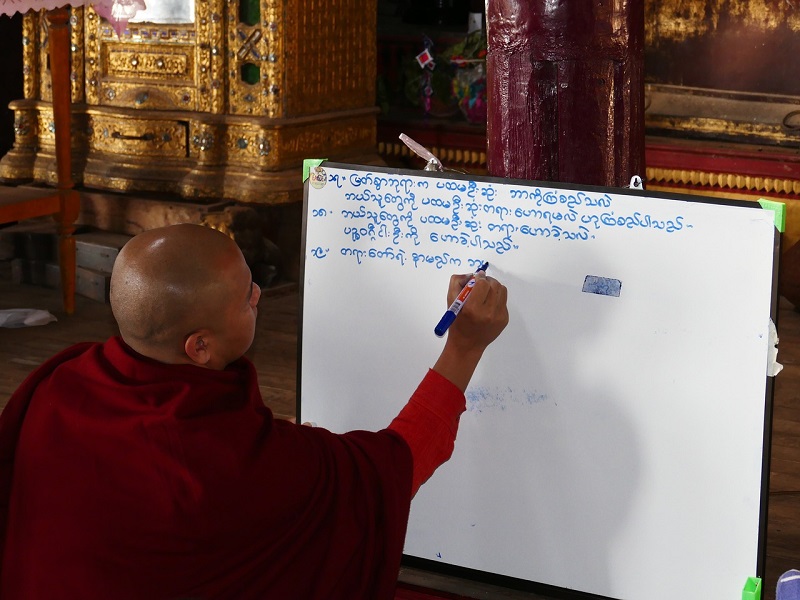 ၁၇။ မြတ်စွာဘုရားက ပထမဦးဆုံး ဘာကိုကြံစည်သလဲ
ဘယ်သူတွေကို ပထမဦးဆုံးတရားဟောရမလဲ ဟုကြံစည်ပါသည်။
၁၈။ ဘယ်သူတွေကို ပထမဦးဆုံး တရားဟောခဲ့သလဲ။
ပဉ္စဝဂ္ဂီငါးဦးကို ဟောခဲ့ပါသည်။
၁၉။ တရားတော်ရဲ့ နာမည်က ဘာ